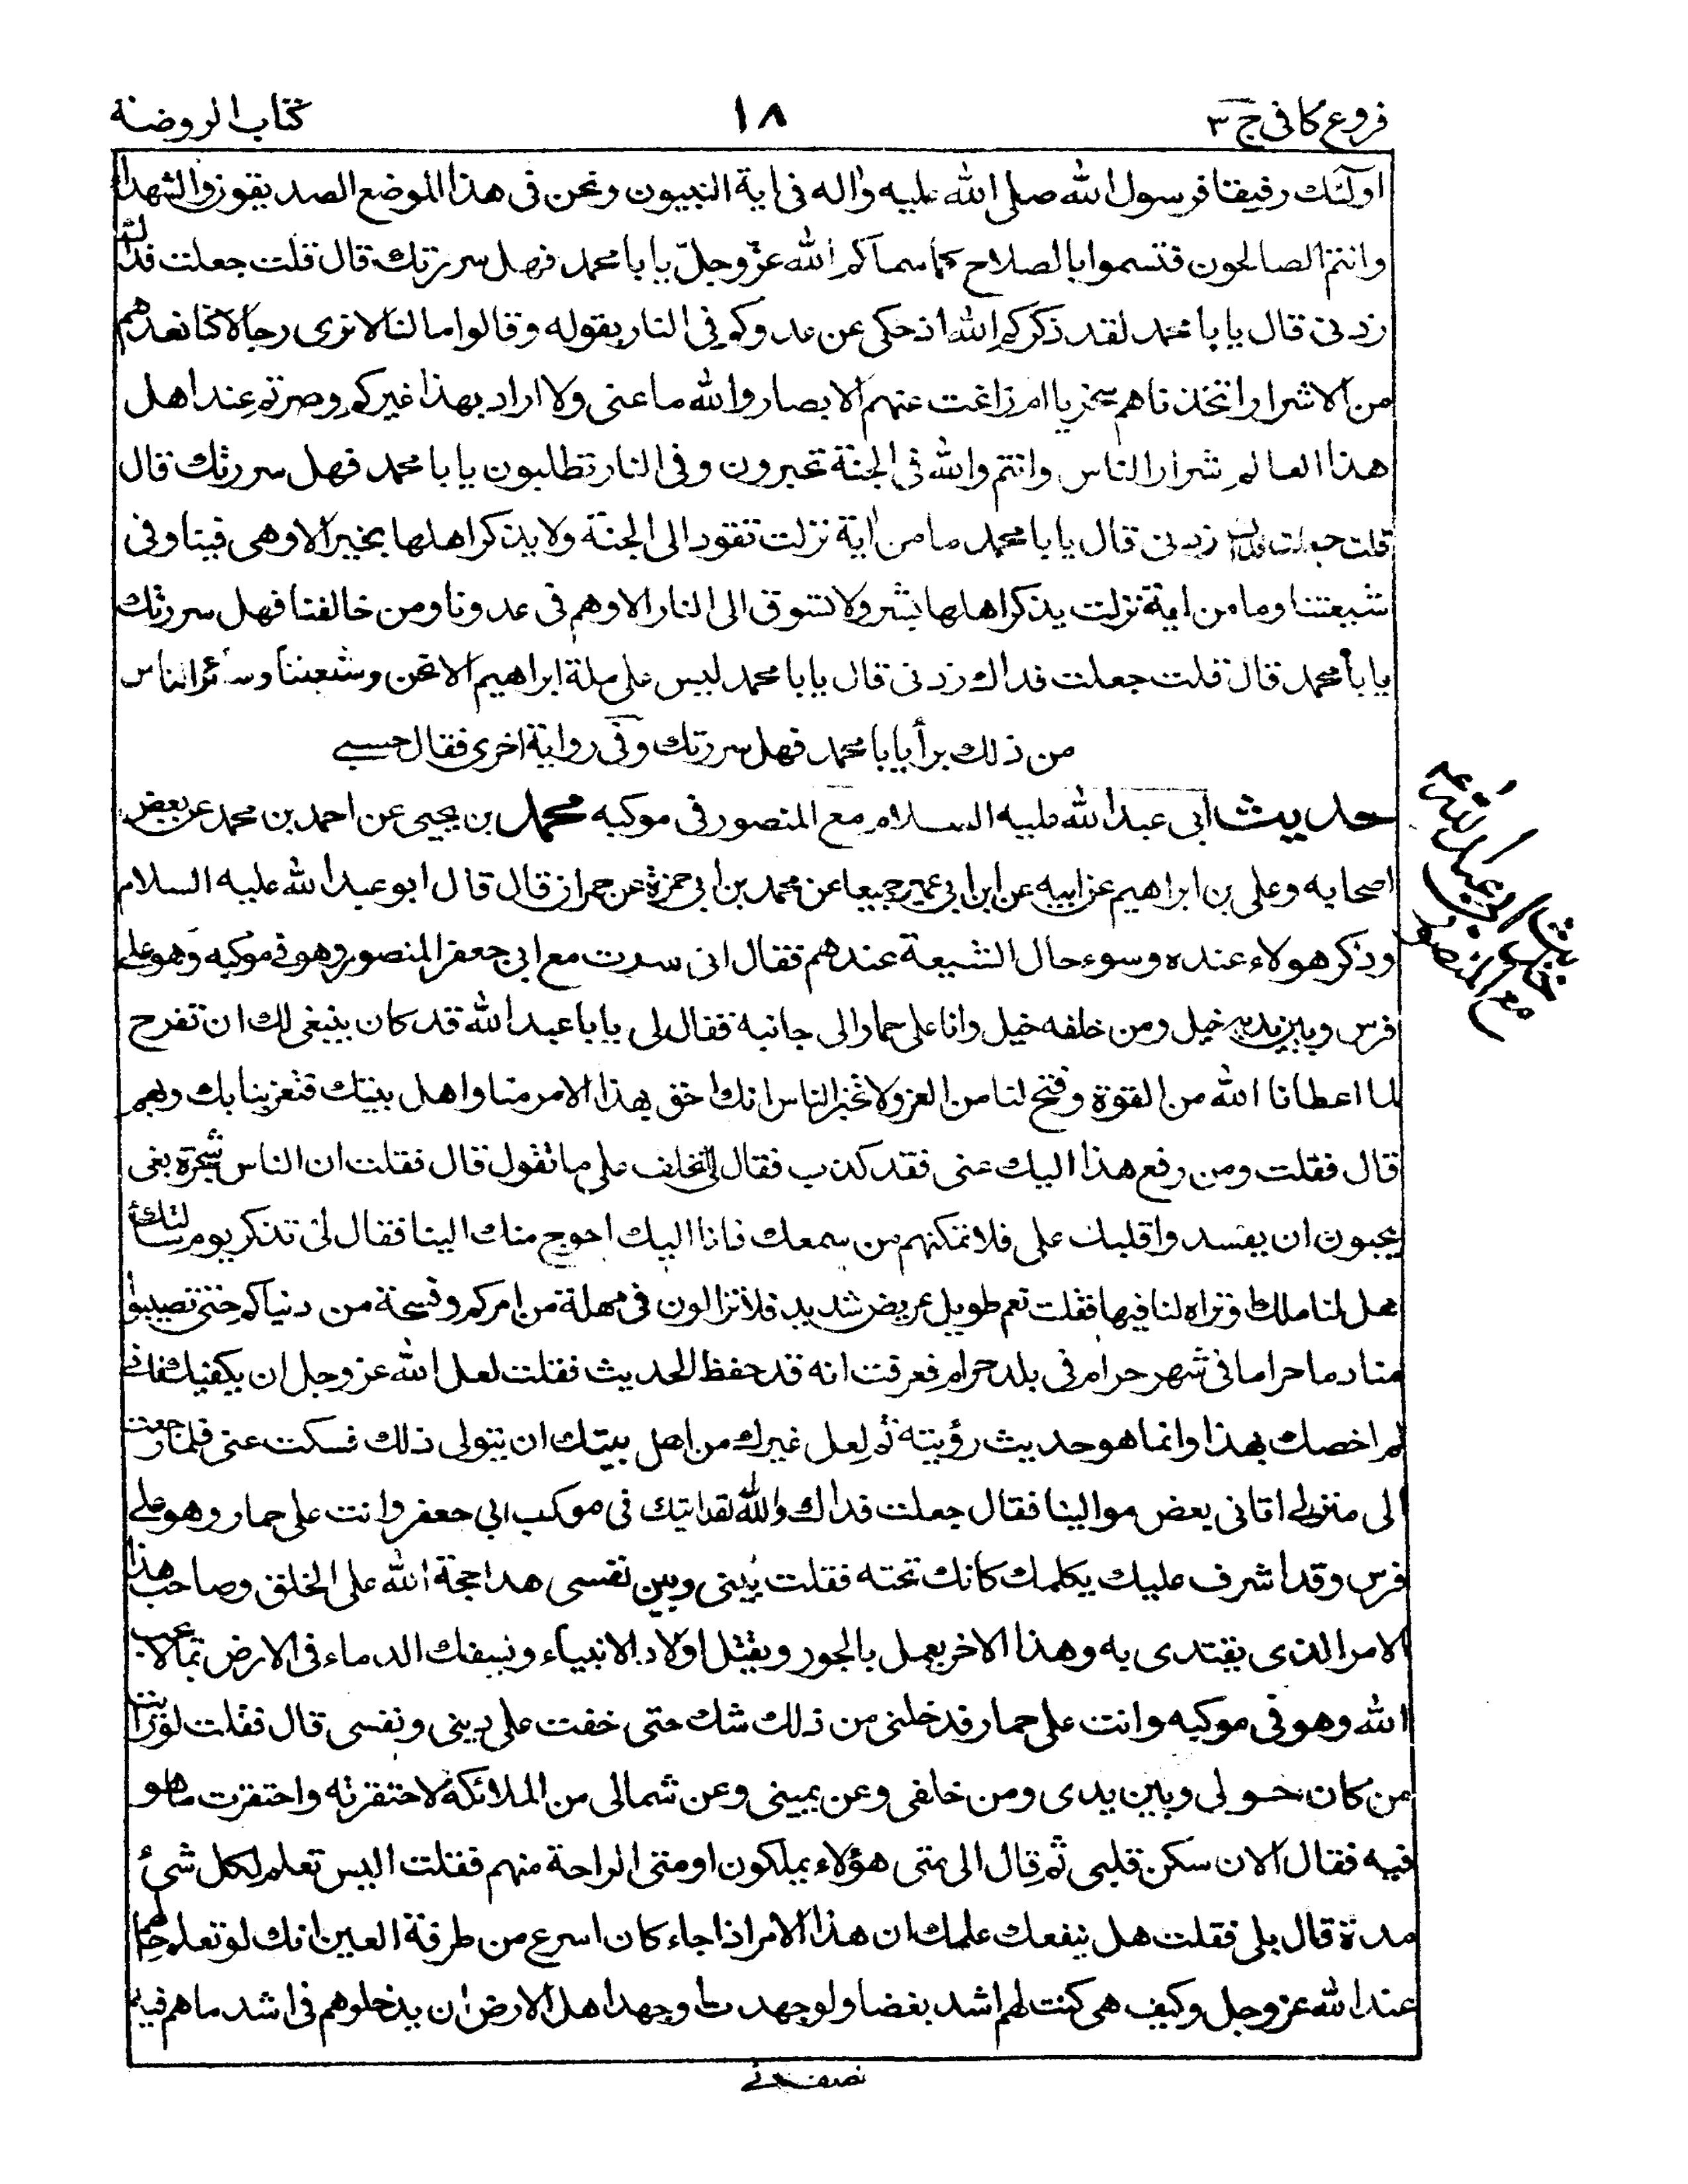 فروع كافى ج ٣
١٨
كتاب الروضة
اولئك رفيقا فرسول الله صلى الله عليه واله فى اية النبيون ونحن فى هذا الموضع الصديقون والشهداء
وانتم الصالحون فتسموا بالصلاح كما سماكم الله عزّ وجلّ يا با محمد فهل سررتك قال قلت جعلت فداك
زدنى قال يا با محمد لقد ذكركم الله اذ حكى عن عدوكم فى النار بقوله وقالوا ما لنا لا نرى رجالا كنا نعدهم
من الاشرار اتخذناهم سخريا ام زاغت عنهم الابصار والله ما عنى ولا اراد بهذا غيركم وصرتم عند اهل
هذا العالم شرار الناس وانتم والله فى الجنة تحبرون وفى النار تطلبون يا با محمد فهل سررتك قال
قلت جعلت فداك زدنى قال يا با محمد ما من اية نزلت تقود الى الجنة ولا يذكر اهلها بخير الا وهى فينا وفى
شيعتنا وما من اية نزلت يذكر اهلها بشر ولا تسوق الى النار الا وهم فى عدونا ومن خالفنا فهل سررتك
يا با محمد قال قلت جعلت فداك زدنى قال يا با محمد ليس على ملة ابراهيم الا نحن وشيعتنا وسائر الناس
من ذلك برأ يا با محمد فهل سررتك وفى رواية اخرى فقال حسبى
حديث ابى عبد الله عليه السلام مع المنصور فى موكبه محمد بن يحيى عن احمد بن محمد عن بعض
اصحابه وعلى بن ابراهيم عن ابيه عن ابن ابى عمير جميعا عن محمد بن ابى حمزة عن حمران قال قال ابو عبد الله عليه السلام
وذكر هولاء عنده وسوء حال الشيعة عندهم فقال انى سرت مع ابى جعفر المنصور وهو فى موكبه وهو على
فرس وبين يديه خيل ومن خلفه خيل وانا على حمار الى جانبه فقال لى يا با عبد الله قد كان ينبغى لك ان تفرح
لما اعطانا الله من القوة وفتح لنا من العز ولا تخبر الناس انك احق بهذا الامر منا واهل بيتك فتغرينا بك وبهم
قال فقلت ومن رفع هذا اليك عنى فقد كذب فقال لى اتحلف على ما تقول قال فقلت ان الناس شجرة بغى
يحبون ان يفسدوا قلبك على فلا تمكنهم من سمعك فانا اليك احوج منك الينا فقال لى تذكر يوم سالتك
هل لنا ملك وتراه لنا فيها فقلت نعم طويل عريض شديد فلا تزالون فى مهلة من امركم وفسحة من دنياكم حتى تصيبوا
منا دما حراما فى شهر حرام فى بلد حرام فعرفت انه قد حفظ الحديث فقلت لعل الله عز وجل ان يكفيك فانى
لم اخصك بهذا وانما هو حديث رؤيته ثم لعل غيرك من اهل بيتك ان يتولى ذلك فسكت عنى فلما رجعت
الى منزلى اتانى بعض موالينا فقال جعلت فداك والله لقد رايتك فى موكب ابى جعفر وانت على حمار وهو على
فرس وقد اشرف عليك يكلمك كانك تحته فقلت بينى وبين نفسى هذا حجة الله على الخلق وصاحب هذا
الامر الذى يقتدى به وهذا الاخر يعمل بالجور ويقتل اولاد الانبياء ويسفك الدماء فى الارض بما لا يحب
الله وهو فى موكبه وانت على حمار فدخلنى من ذلك شك حتى خفت على دينى ونفسى قال فقلت لو رايت
من كان حولى وبين يدى ومن خلفى وعن يمينى وعن شمالى من الملائكة لاحتقرته واحتقرت ما هو
فيه فقال الان سكن قلبى ثم قال الى متى هؤلاء يملكون او متى الراحة منهم فقلت اليس تعلم لكل شئ
مدة قال بلى فقلت هل ينفعك علمك ان هذا الامر اذا جاء كان اسرع من طرفة العين انك لو تعلم حالهم
عند الله عز وجل وكيف هى كنت لهم اشد بغضا ولو جهدت او جهد اهل الارض ان يدخلوهم فى اشد ما هم فيه
حديث ابى عبد الله ع
مع المنصور